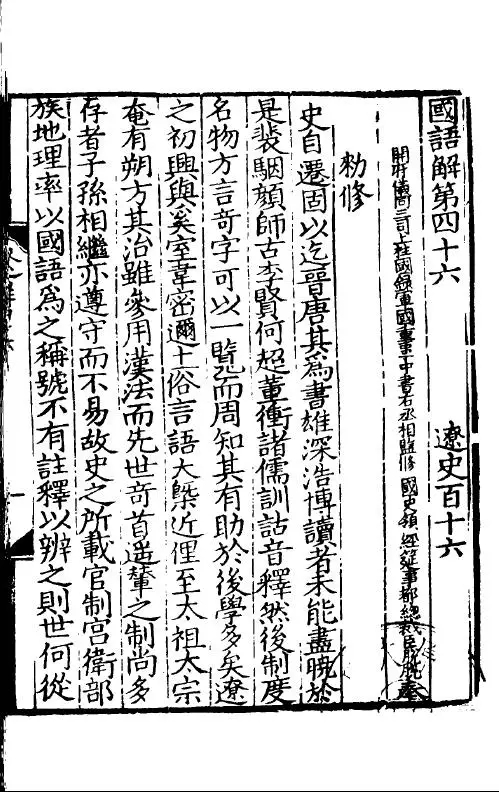 國語解第四十六 遼史百十六
開府儀同三司上柱國錄軍國重事中書右丞相監修 國史領 經筵事都總裁臣脫脫奉
勑修
史自遷固以迄晉唐其爲書雄深浩博讀者未能盡曉於
是裴駰顔師古李賢何超董衝諸儒訓詁音釋然後制度
名物方言奇字可以一覽而周知其有助於後學多矣遼
之初興與奚室韋密邇土俗言語大槩近俚至太祖太宗
奄有朔方其治雖參用漢法而先世奇首遥輦之制尚多
存者子孫相繼亦遵守而不易故史之所載官制宫衛部
族地理率以國語爲之稱號不有註釋以辨之則世何從